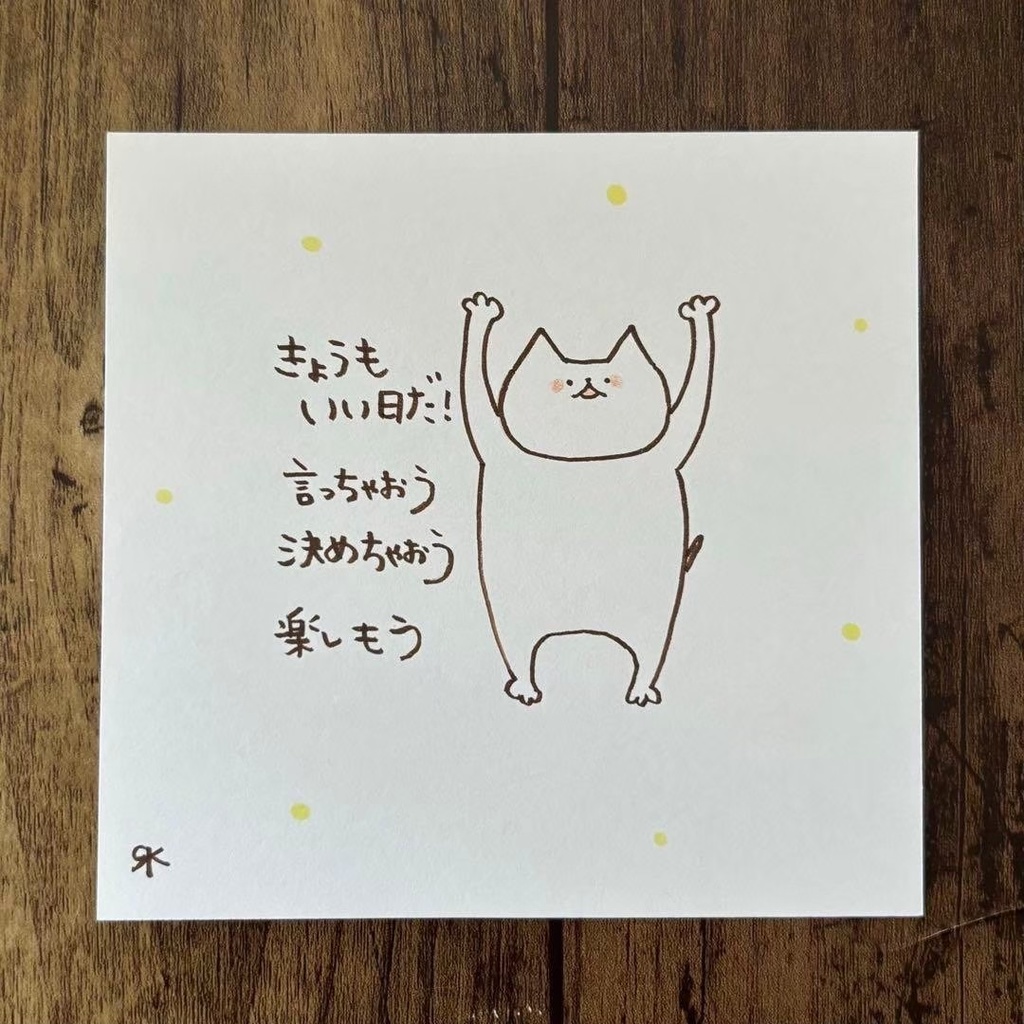 きょうも
いい日だ!
言っちゃおう
決めちゃおう
楽しもう